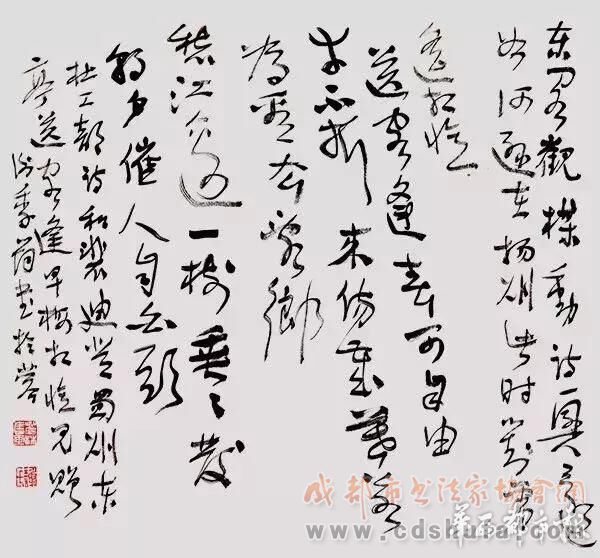 东阁觀楳動诗興還
如何遜在扬州此时对雪
遥相忆
送客逢春可自由
幸不折来伤岁暮若
为看去乱鄉
愁江边一樹垂垂发
朝夕催人自白头
杜工部诗和裴迪登蜀州东
亭送客逢早梅相忆见赠
谢季筠书於蓉
成都市书法家协会网
华西都市报
www.cdshufa.com